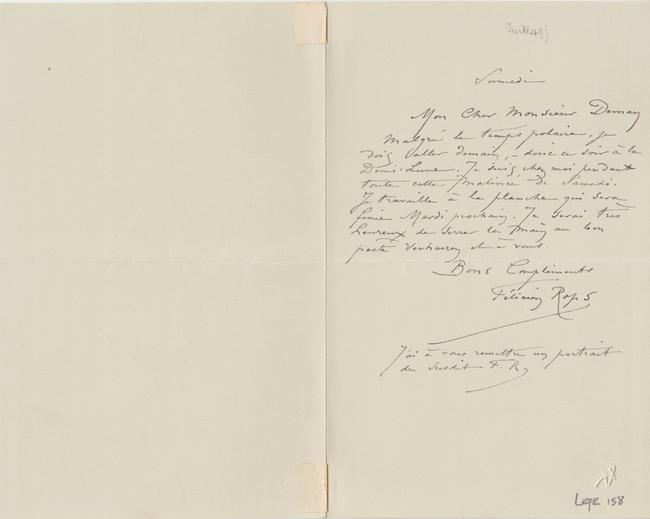 Samedi
Mon Cher Monsieur Deman
Malgré le temps polaire, je
dois aller demain, – donc ce soir à la
Demi-Lune. Je suis chez moi pendant
toute cette matinée de Samedi.
Je travaille à la planche qui sera
finie Mardi prochain. Je serai très
heureux de serrer la main au bon
poète Verhaeren et à vous.
Bons Compliments
Félicien Rops
J'ai à vous remettre un portrait
du susdit F. R.
LEpR 158